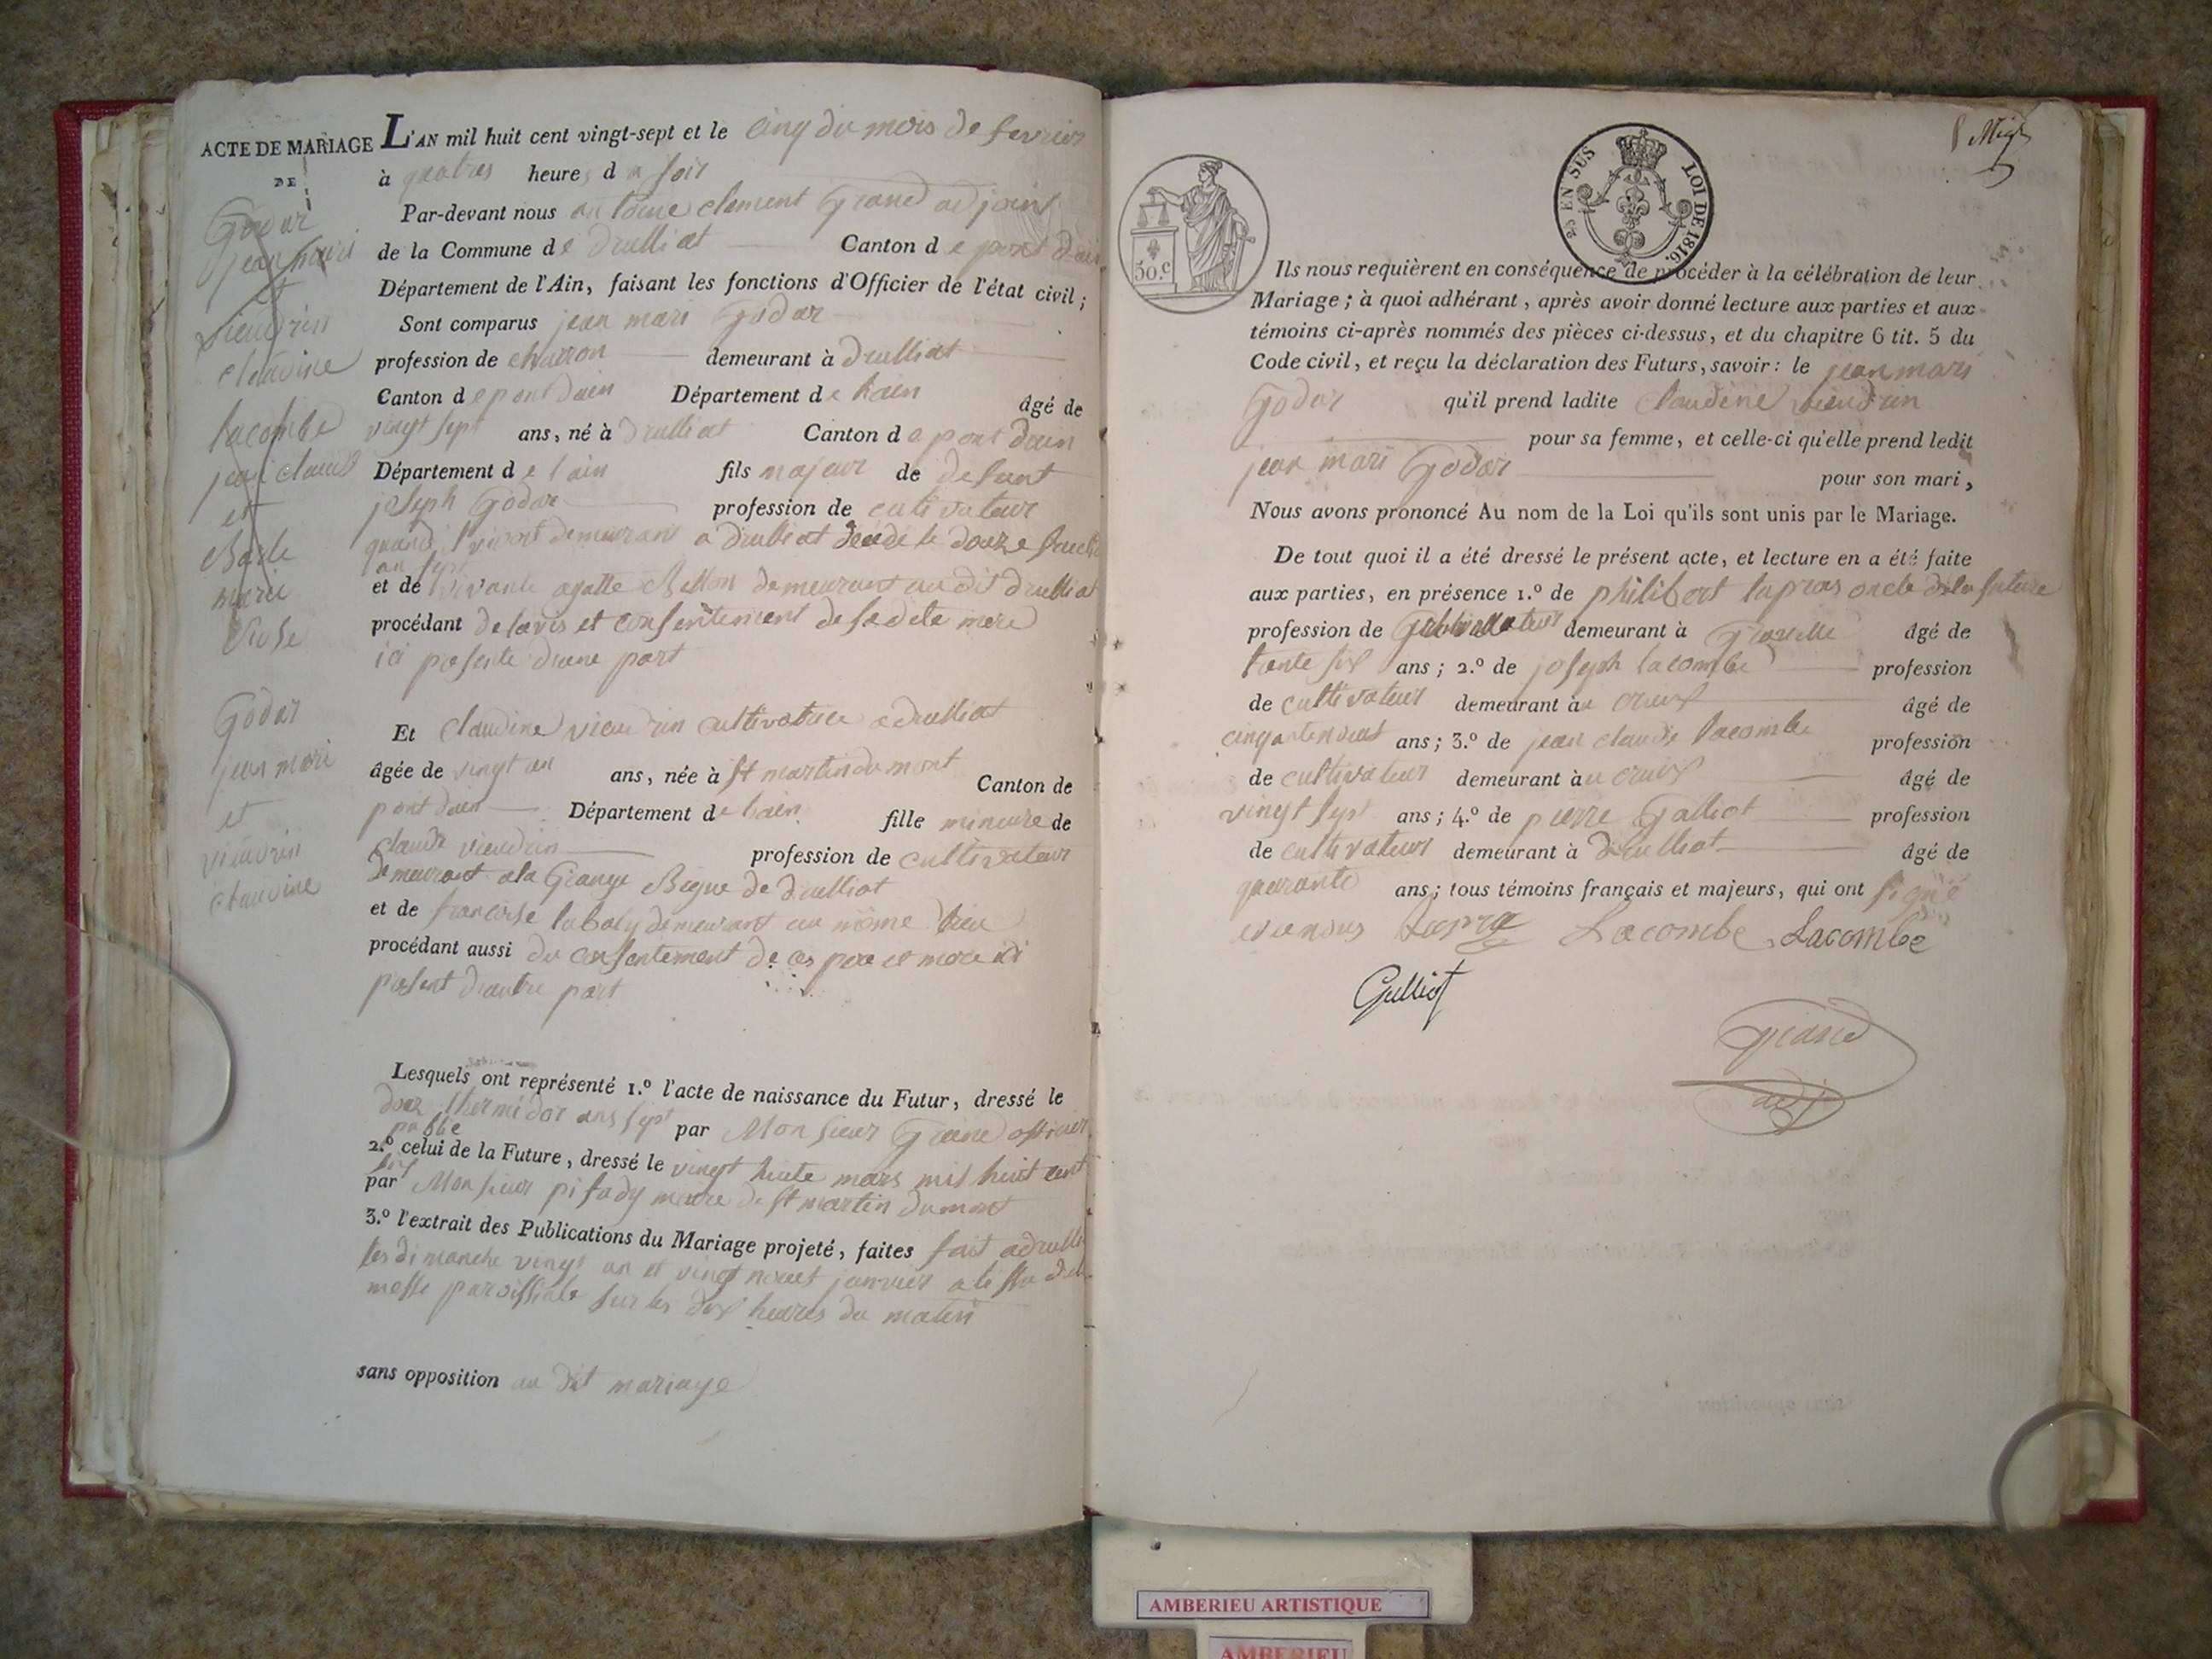 ACTE DE MARIAGE
DE
Godar
jean mari
et
vieudrin
claudine
lacombe
jean claude
et
marie
Godar
jean mari
et
vieudrin
claudine
L'AN mil huit cent vingt-sept et le cinq du mois de fevrier
à quatres heures d u soir
Par-devant nous antoine clement Grand adjoint
de la Commune de druilliat Canton de pont dain
Département de l'Ain, faisant les fonctions d'Officier de l'état civil;
Sont comparus jean mari Godar
profession de charron demeurant à druilliat
Canton de pont dain Département de lain âgé de
vingt sept ans, né à druilliat Canton de pont dain
Département de lain fils majeur de defunt
joseph Godar profession de cultivateur
quand vivant demeurant a druilliat décédé le douze
et de vivante agatte demeurant au dit druilliat
procédant de lavis et consentement de sadite mere
ici presente dune part
Et claudine vieudrin cultivatrice a druilliat
âgée de vingt un ans, née à st martin du mont Canton de
pont dain Département de lain fille mineure de
claude vieudrin profession de cultivateur
demeurant a la Grange de druilliat
et de francoise demeurant au même lieu
procédant aussi du consentement de ces pere et mere ici
present dautre part
Lesquels ont représenté 1.º l'acte de naissance du Futur, dressé le
thermidor ans sept par Monsieur officier
public
2.º celui de la Future, dressé le vingt huite mars mil huit cent
six
par Monsieur maire de st martin du mont
3.º l'extrait des Publications du Mariage projeté, faites fait a druilliat
les dimanche vingt un et vingt neuf janvier
messe paroissiale sur les dix heures du matin
sans opposition au dit mariage
50.c
EN SUS LOI DE 1816.
Ils nous requièrent en conséquence de procéder à la célébration de leur
Mariage; à quoi adhérant, après avoir donné lecture aux parties et aux
témoins ci-après nommés des pièces ci-dessus, et du chapitre 6 tit. 5 du
Code civil, et reçu la déclaration des Futurs, savoir: le jean mari
Godar qu'il prend ladite claudine vieudrin
pour sa femme, et celle-ci qu'elle prend ledit
jean mari Godar pour son mari,
Nous avons prononcé Au nom de la Loi qu'ils sont unis par le Mariage.
De tout quoi il a été dressé le présent acte, et lecture en a été faite
aux parties, en présence 1.º de philibert lapras oncle de la future
profession de demeurant à âgé de
trante six ans; 2.º de joseph lacombe profession
de cultivateur demeurant à âgé de
ans; 3.º de jean claude lacombe profession
de cultivateur demeurant à âgé de
vingt sept ans; 4.º de pierre Galliot profession
de cultivateur demeurant à druilliat âgé de
quarante ans; tous témoins français et majeurs, qui ont signé
avec nous Lapra Lacombe Lacombe
Gulliot
Grand
adj
AMBERIEU ARTISTIQUE
AMBERIEU